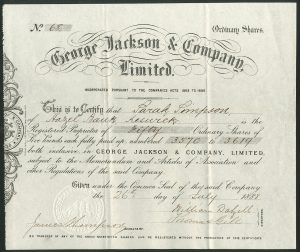 No 68 Ordinary Shares.
George Jackson & Company,
Limited.
INCORPORATED PURSUANT TO THE COMPANIES ACTS 1862 TO 1886
This is to Certify that Sarah Simpson
of Hazel Bank Keswick is the
Registered Proprietor of Fifty Ordinary Shares of
Five Pounds each fully paid up, numbered 3570 to 3619
both inclusive in GEORGE JACKSON & COMPANY, LIMITED,
subject to the Memorandum and Articles of Association and
other Regulations of the said Company.
Given under the Common Seal of the said Company
the 26th day of July 1888
William
James Thompson Thomas
NO TRANSFER OF ANY OF THE ABOVE MENTIONED SHARES CAN BE REGISTERED WITHOUT THE PRODUCTION OF THIS CERTIFICATE.